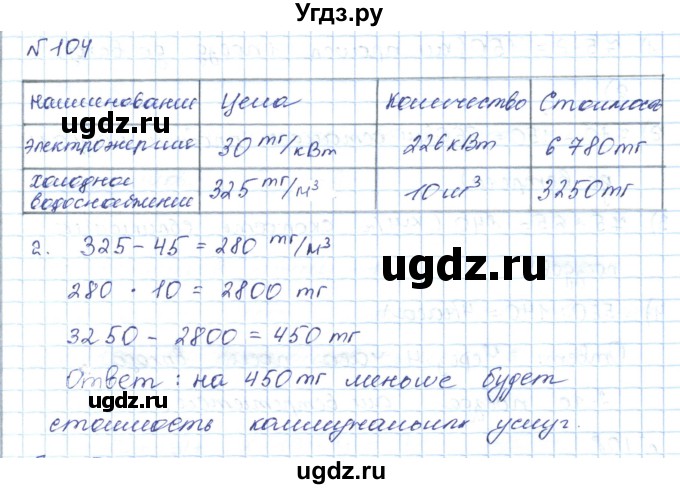 Угдз.ру
№ 104
наименование Цена Количество Стоимость
электроэнергия 30 тг/кВт 226 кВт 6 780 тг
холодное водоснабжение 325 тг/м³ 10 м³ 3250 тг
2. 325 - 45 = 280 тг/м³
280 · 10 = 2800 тг
3250 - 2800 = 450 тг
Ответ: на 450 тг меньше будет
стоимость коммунальных услуг.
ugdz.ru
ugdz.ru
ugdz.ru
ugdz.ru
ugdz.ru
ugdz.ru